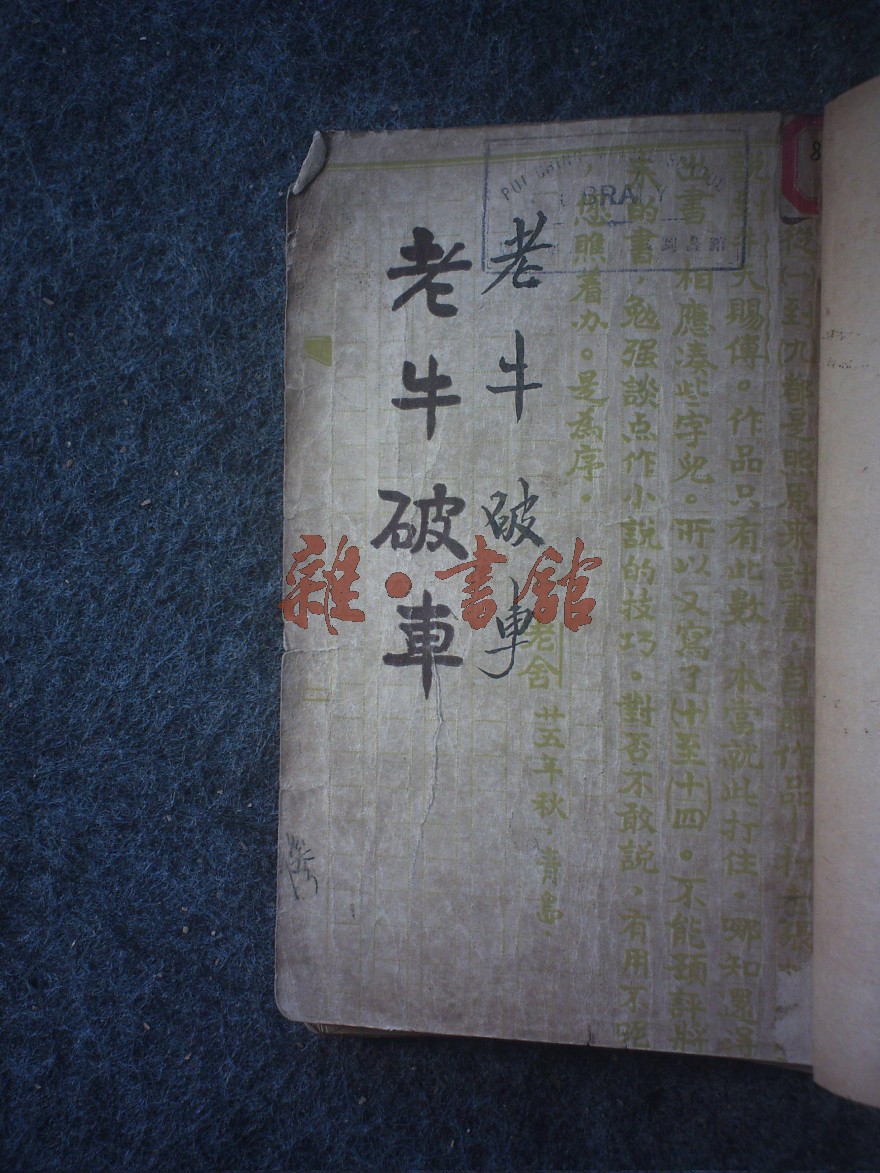 從(一)到(九)都是照原來計畫,自
說到牛天賜傳。作品只有此數,本當就此打住。哪知還得
出書,相應湊些字兒。所以又寫了(十)至(十四)。不能預評將
來的書,勉强談点作小說的技巧。對否不敢說,有用不呢
,您瞧着办。是為序。
老舍 廿五年秋,青島
老牛破車
老牛破車
PUI CHING
圖書館
雜·書館
8